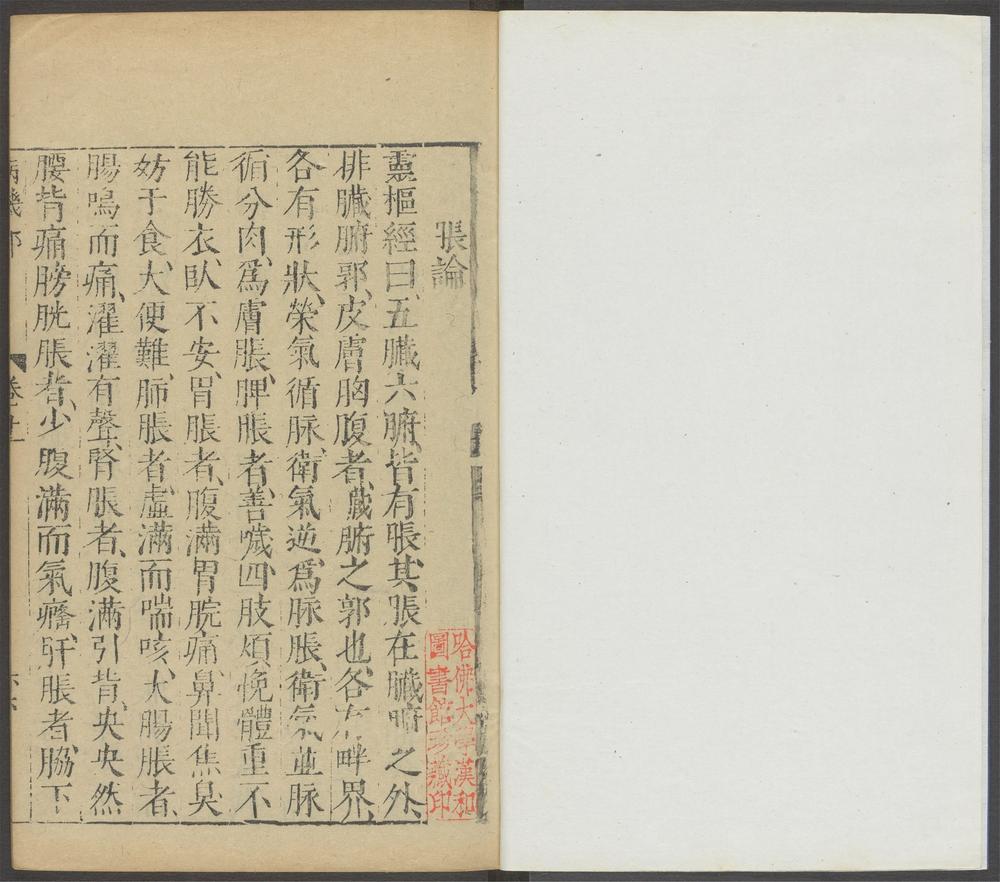 脹論
靈樞經曰、五臟六腑、皆有脹、其脹在臟腑之外、
排臟腑郭、皮膚胸腹者、藏腑之郭也、各有畔界、
各有形狀、榮氣循脉、衛氣逆、爲脉脹、衛氣並脉
循分肉、爲膚脹、脾脹者、善噦、四肢煩悗體重不
能勝衣、臥不安、胃脹者、腹滿胃脘痛、鼻聞焦臭、
妨于食、大便難、肺脹者、虛滿而喘咳、大腸脹者、
腸鳴而痛、濯濯有聲、腎脹者、腹滿引背、央央然
腰背痛膀胱脹者、少腹滿而氣癃、肝脹者、脇下
卷十
哈佛大學漢和
圖書館珍藏印